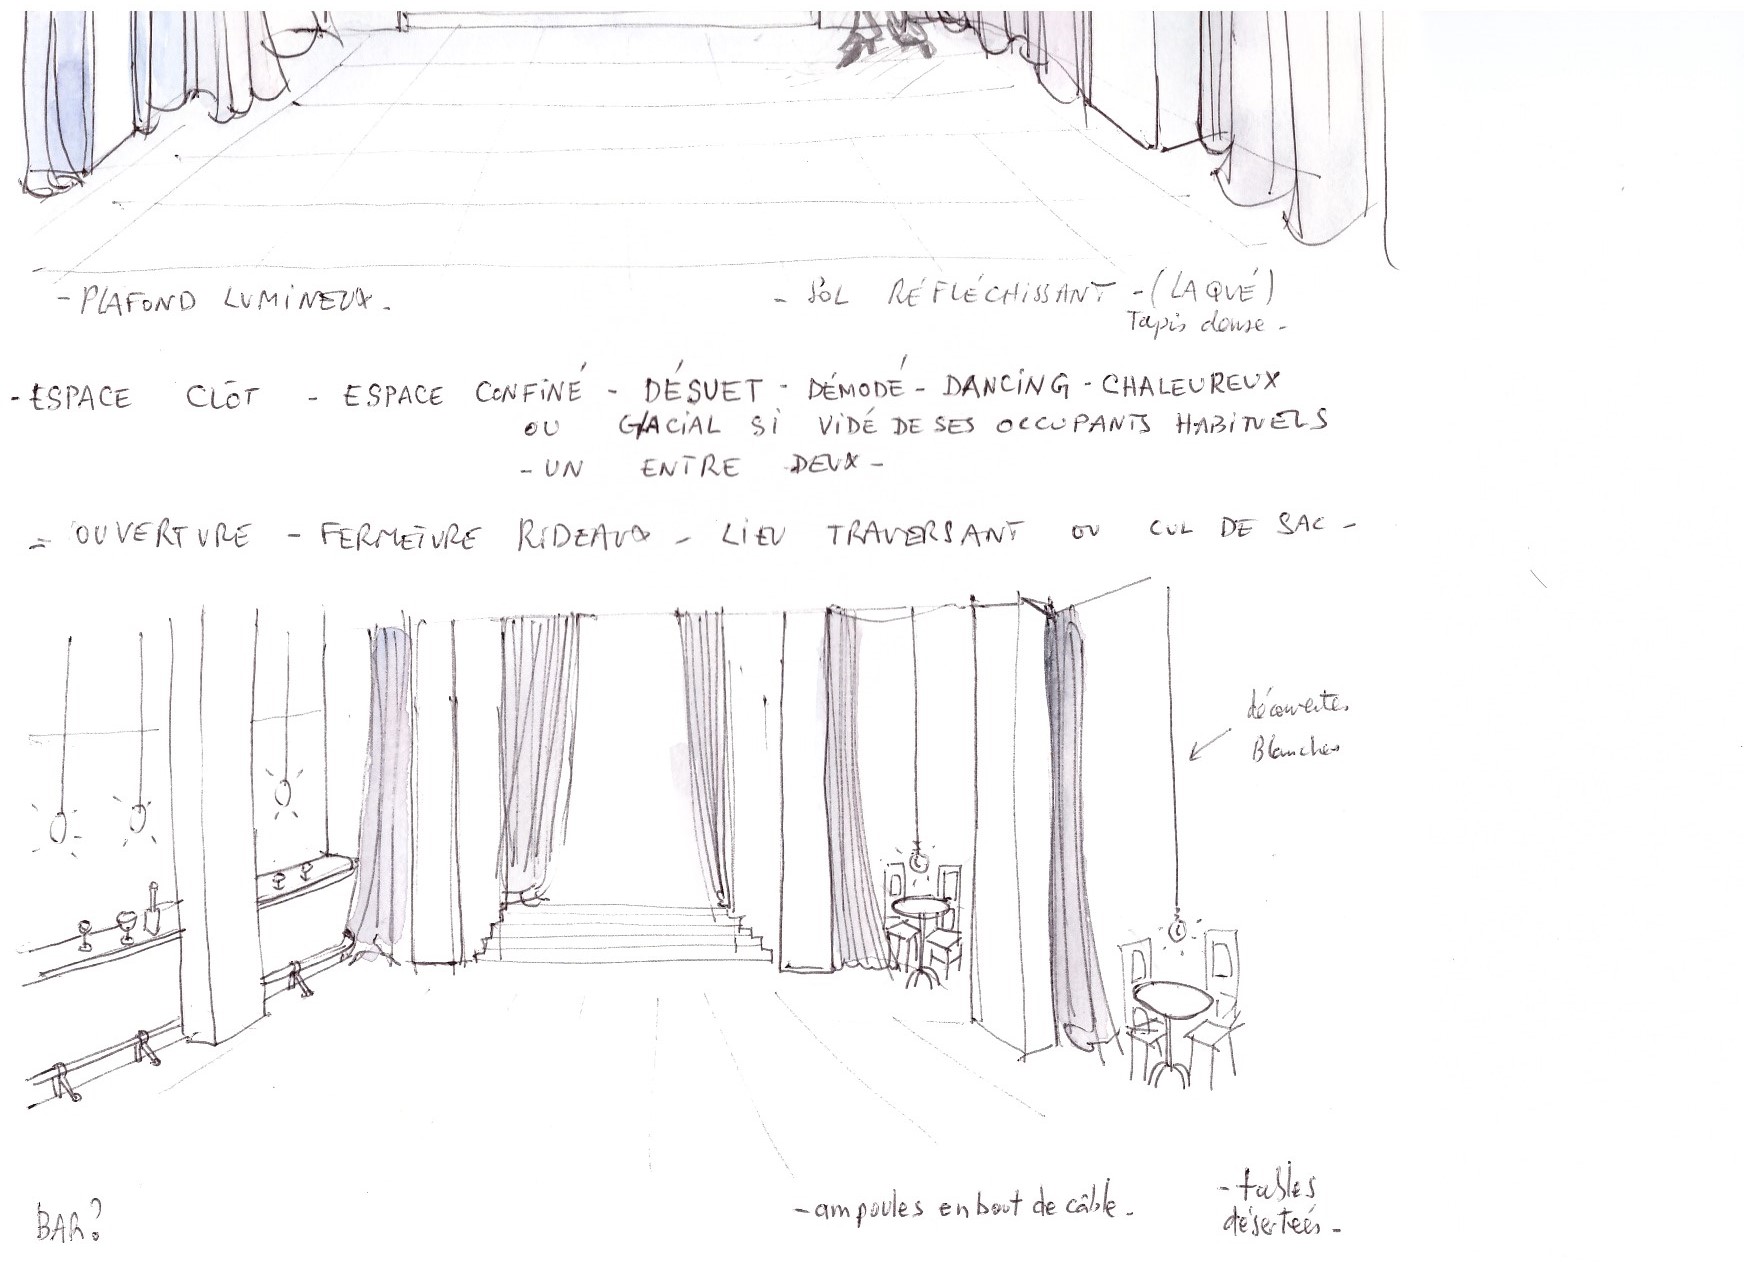 - PLAFOND LUMINEUX.
- SOL RÉFLÉCHISSANT - (LAQUÉ)
Tapis danse -
- ESPACE CLÔT - ESPACE CONFINÉ - DÉSUET - DÉMODÉ - DANCING - CHALEUREUX
OU GLACIAL SI VIDÉ DE SES OCCUPANTS HABITUELS
- UN ENTRE DEUX -
= OUVERTURE - FERMETURE RIDEAUX - LIEU TRAVERSANT OU CUL DE SAC -
découvertes
Blanches
- ampoules en bout de câble.
- tables
désertées -
BAR?